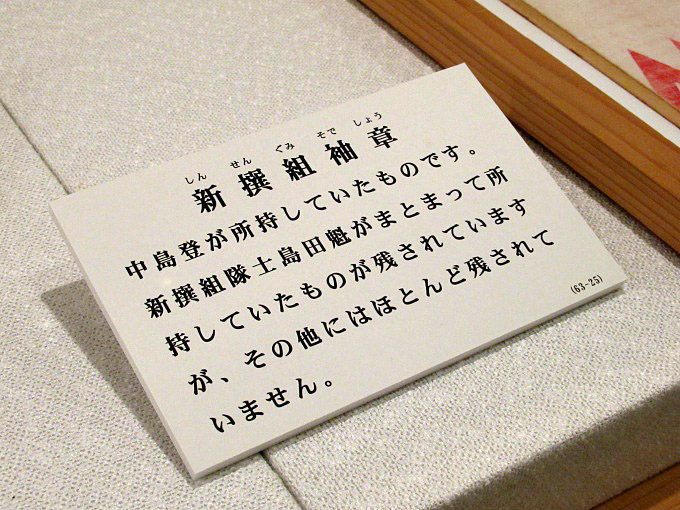 しん せん ぐみ そで しょう
新撰組袖章
中島登が所持していたものです。
新撰組隊士島田魁がまとまって所
持していたものが残されています
が、その他にはほとんど残されて
いません。
(63-25)